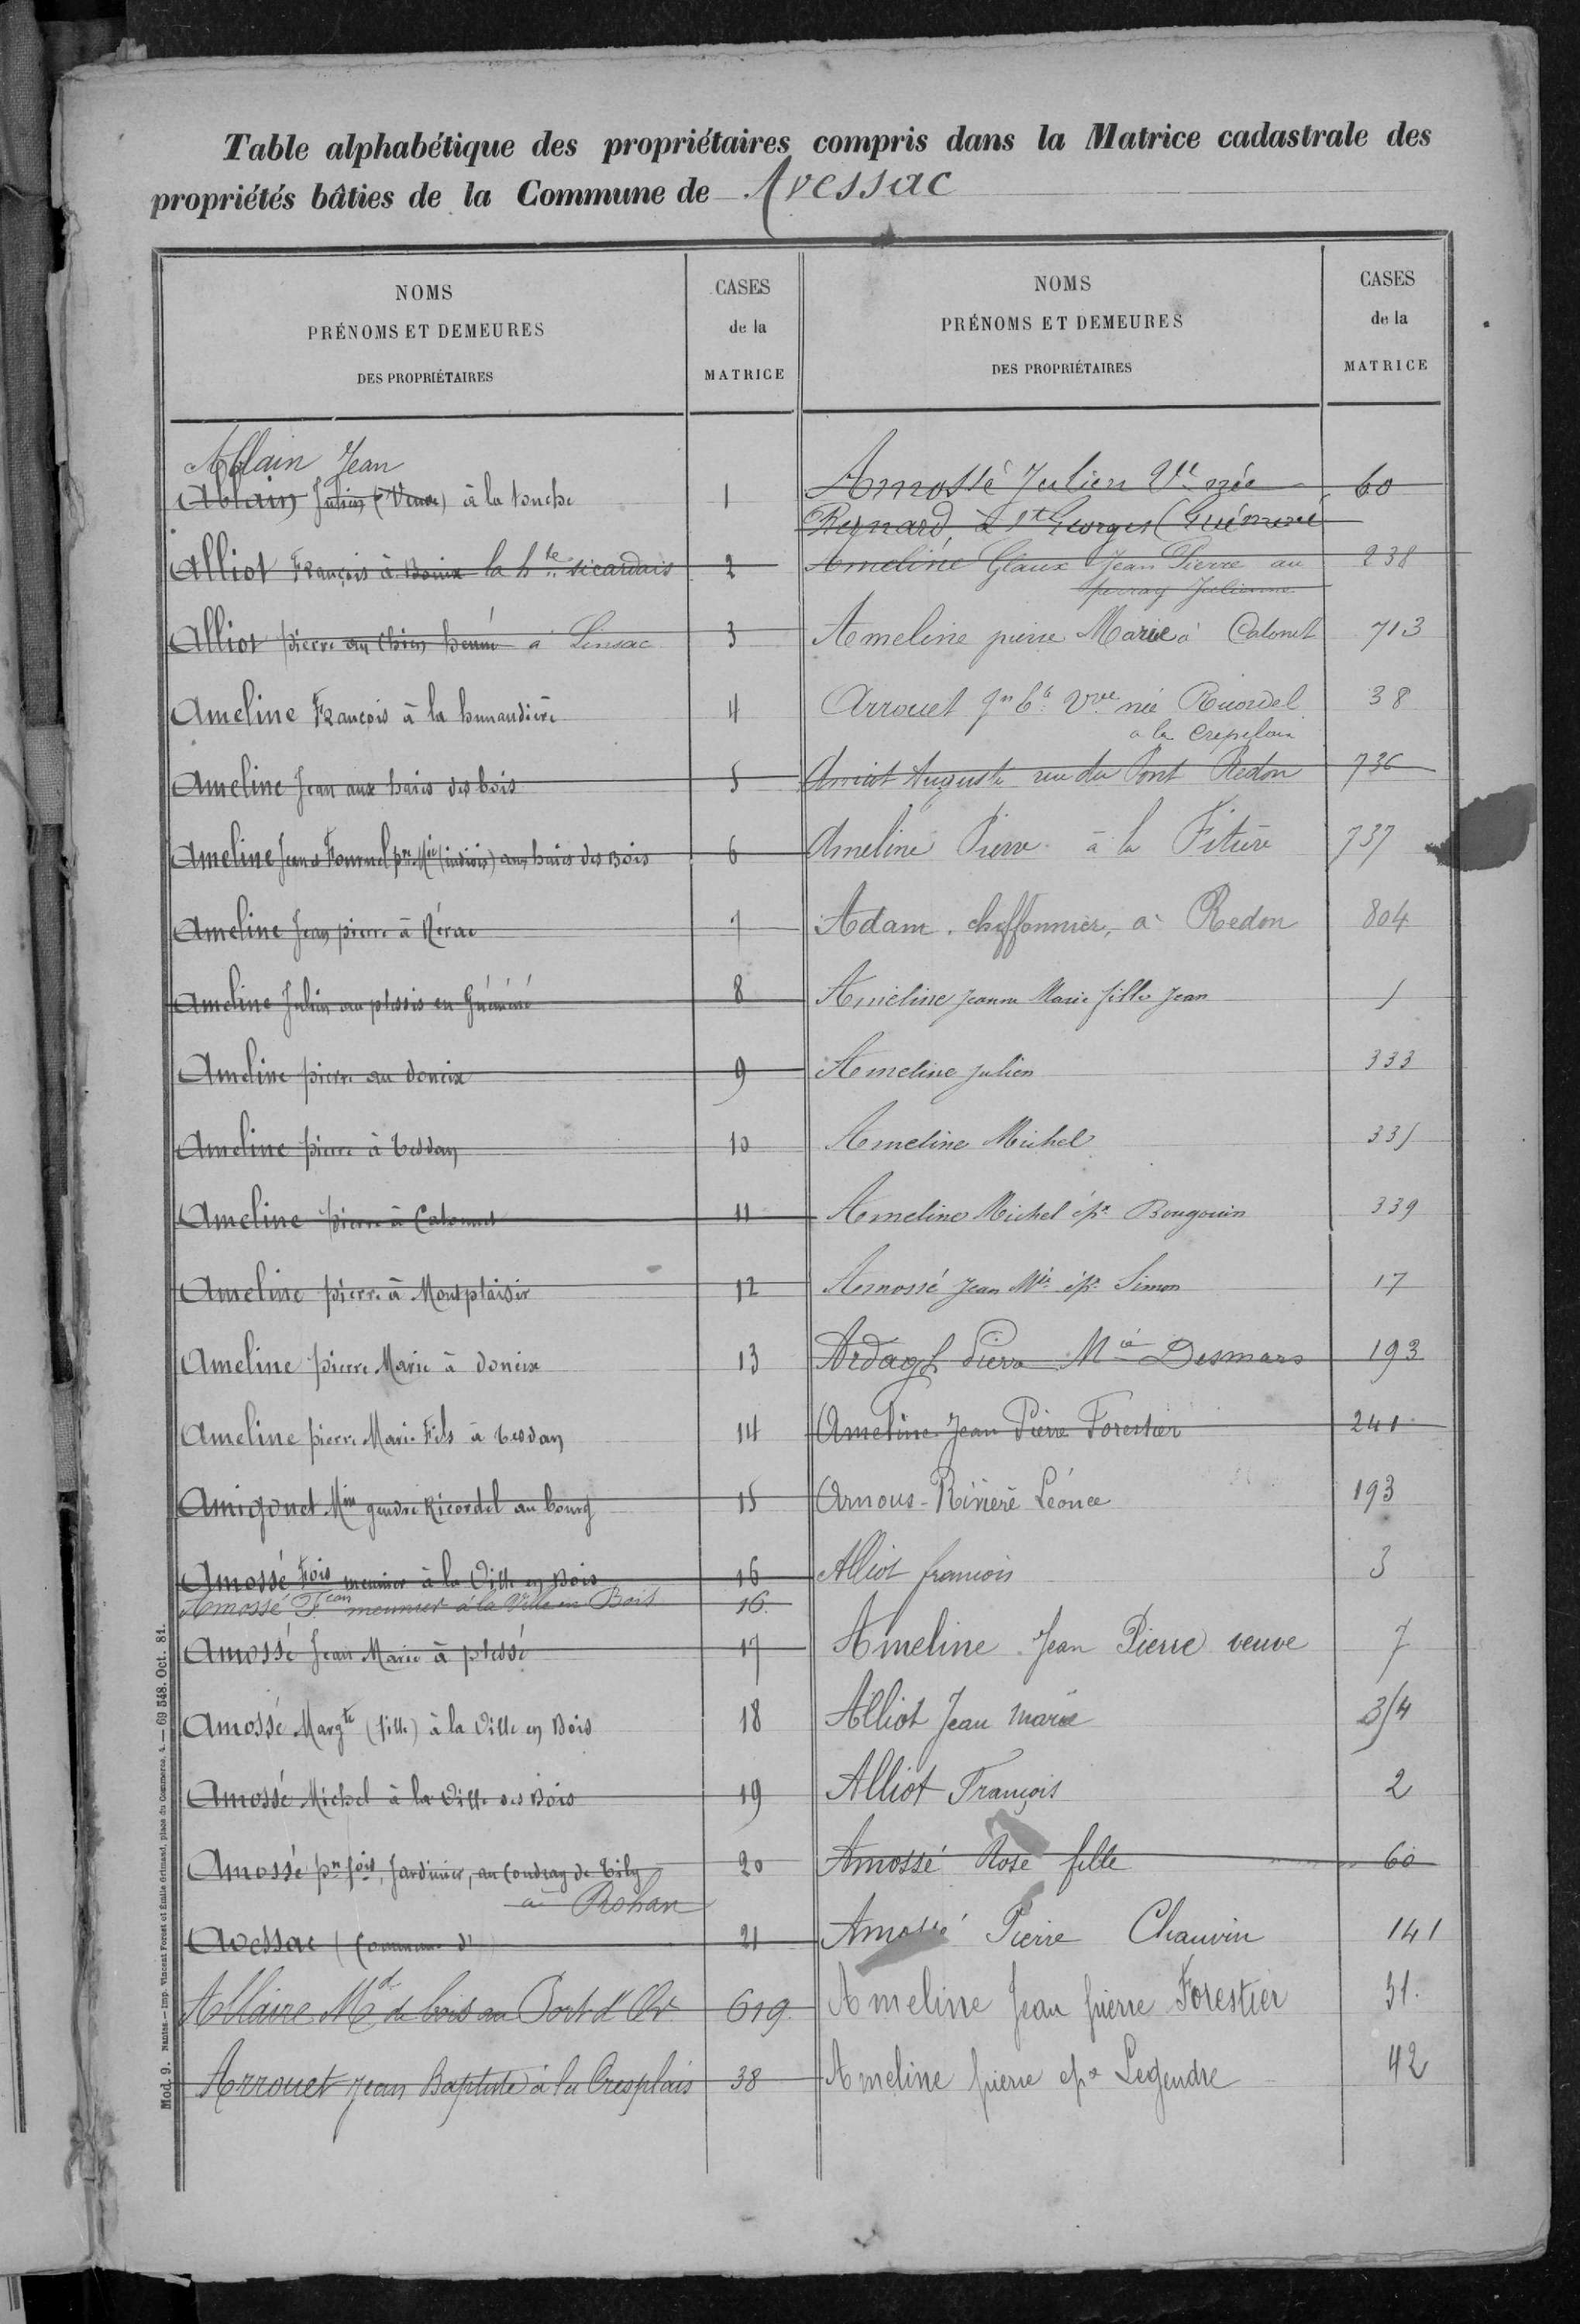 Table alphabétique des propriétaires compris dans la Matrice cadastrale des
propriétés bâties de la Commune de Avessac
NOMS
PRÉNOMS ET DEMEURES
DES PROPRIÉTAIRES
CASES
de la
MATRICE
NOMS
PRÉNOMS ET DEMEURES
DES PROPRIÉTAIRES
CASES
de la
MATRICE
Ablain Jean
Ablain Julien (Veuve) à la touche 1
Alliot François à la hte sicardais 2
Alliot pierre à Linsac 3
Ameline François à la hunaudière 4
Ameline Jean aux haies des bois 5
Ameline Jean et Fournel pre Mie (indivis) aux haies des Bois 6
Ameline Jean pierre à Nérac 7
Ameline Julien au plessis en Guéméné 8
Ameline pierre au doneix 9
Ameline pierre à tesdan 10
Ameline pierre à Calonnet 11
Ameline pierre à Montplaisir 12
Ameline pierre Marie à doneix 13
Ameline pierre Marie Fils à tesdan 14
Amigonet Min gendre Ricordel au bourg 15
Amossé Fois meunier à la Ville en Bois 16
Amossé Jean meunier à la Ville en Bois 16
Amossé Jean Marie à plessé 17
Amossé Margte (fille) à la Ville en Bois 18
Amossé Michel à la Ville des Bois 19
Amossé pre fois, Jardinier, au Coudray de Tily 20
à Rohan
Avessac (Commune d') 21
Allaire Md de bois au Port d'Or 619
Arrouet Jean Baptiste à la Cresplais 38
Amossé Julien Vve née 60
Bernard, à St Georges (Guémené
Ameline Glaux Jean Pierre au 238
perray Julienne
Ameline pierre Marie à Calonet 713
Arrouet Jn Bte Vve née Ricordel 38
a la Crepelais
Amiot Auguste rue du Pont Redon 736
Ameline Pierre à la Fitière 737
Adam, chiffonnier, à Redon 804
Ameline Jeanne Marie fille Jean 1
Ameline Julien 333
Ameline Michel 335
Ameline Michel épx Bougouin 339
Amossé Jean Mie épx Simon 17
Ardagh Pierre Mie Desmars 193
Ameline Jean Pierre Forestier 241
Arnous-Rivière Léonce 193
Alliot francois 3
Ameline Jean Pierre veuve 7
Alliot Jean marie 354
Alliot François 2
Amossé Rose fille 60
Amossé Pierre Chauvin 141
Ameline Jean pierre Forestier 51.
Ameline pierre epx Legendre 42
Mod. 9. Nantes. — Imp. Vincent Forest et Émile Grimaud, place du Commerce, 4. — 69 548. Oct. 81.